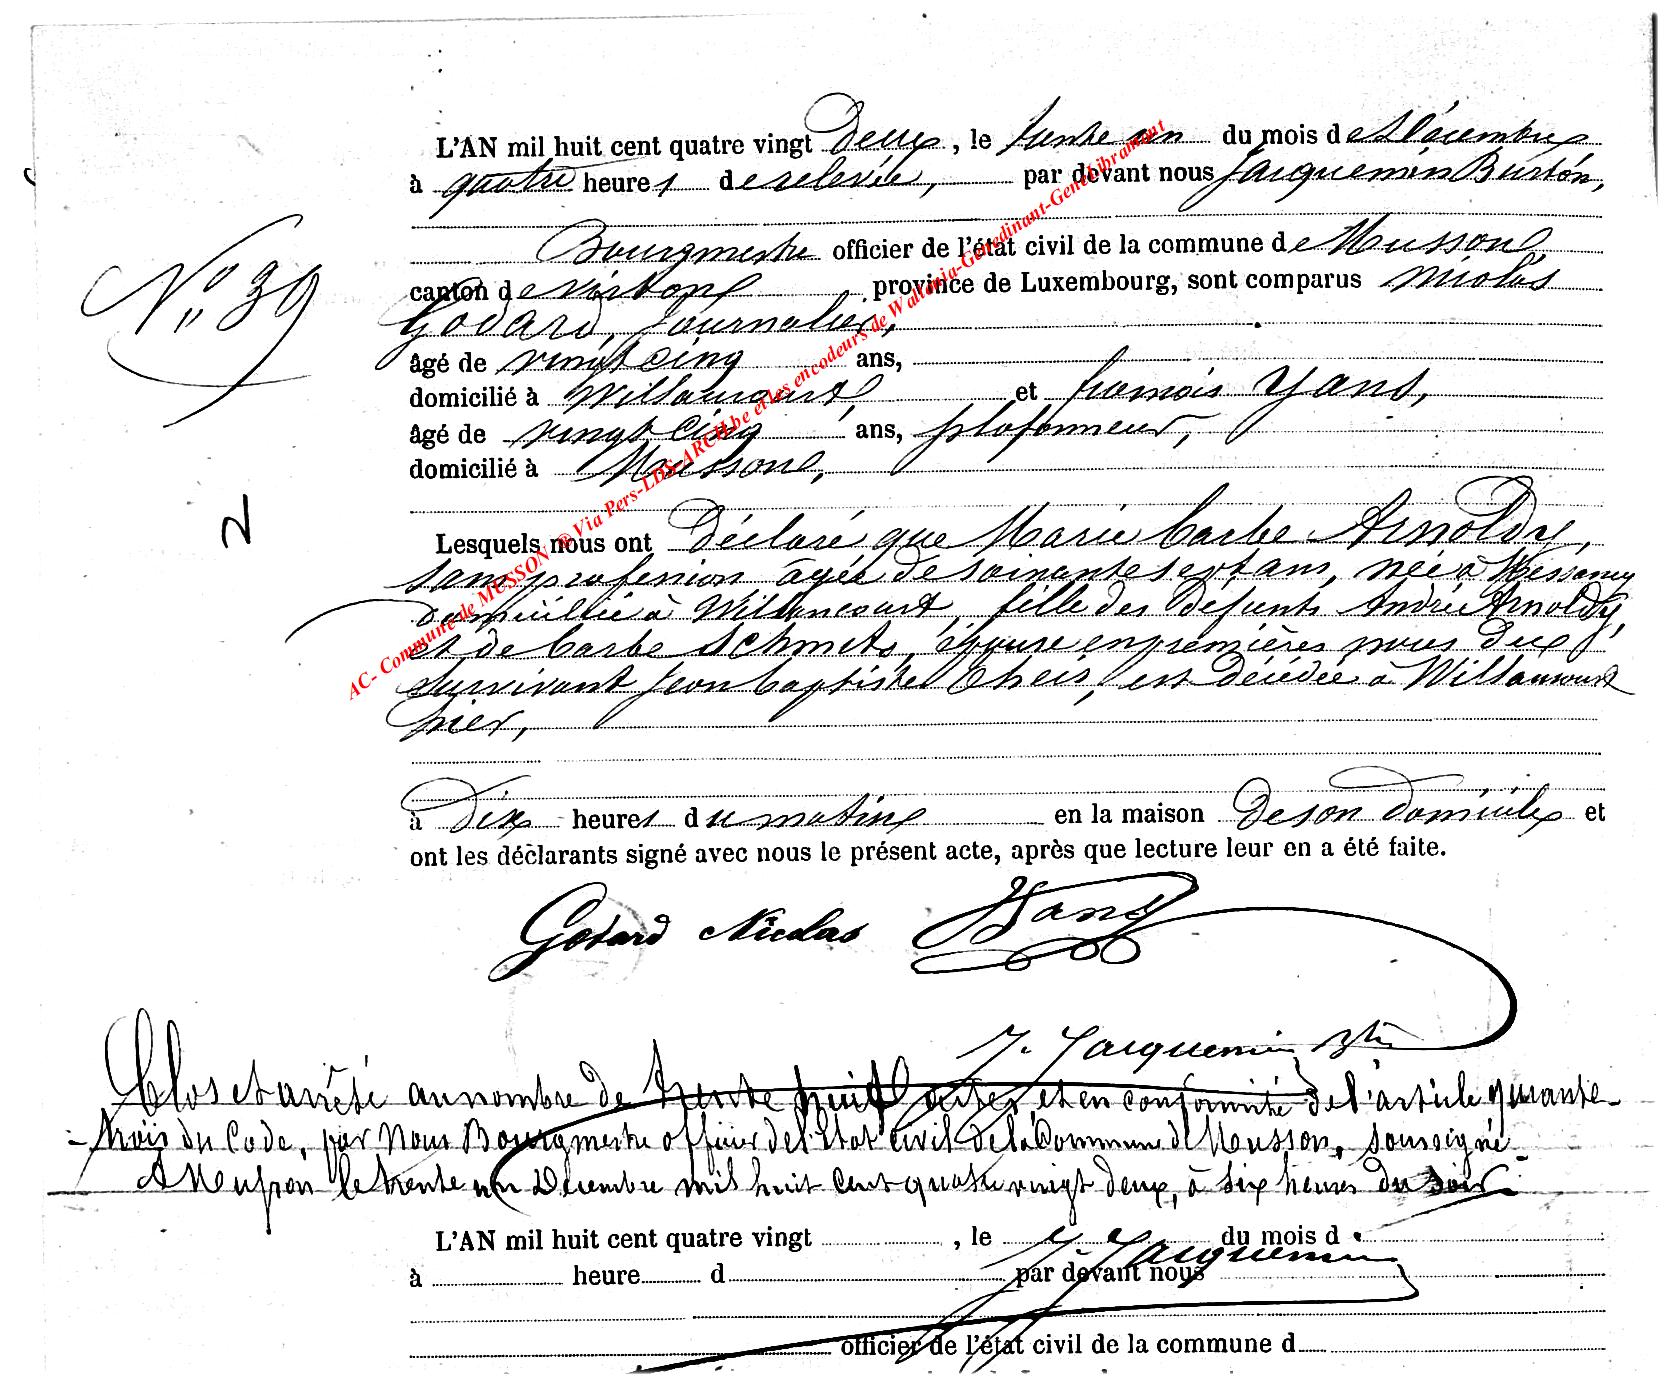 L'AN mil huit cent quatre vingt Deux, le trente un du mois de Décembre
à quatre heures de relevée, par devant nous Jacquemin Burton,
Bourgmestre officier de l'état civil de la commune de Musson,
N° 39
canton de Virton province de Luxembourg, sont comparus Nicolas
Godard, journalier,
âgé de vingt cinq ans,
domicilié à Willancourt, et françois Yans,
âgé de vingt cinq ans, plafonneur,
domicilié à Musson,
2
Lesquels nous ont Déclaré que Marie Barbe Arnoldy,
sans profession âgée de soixante sept ans, née à Messancy
domiciliée à Willancourt, fille des défunts André Arnoldy,
et de Barbe Schmets, épouse en premières noces du
survivant Jean Baptiste Theis, est décédée à Willancourt
hier,
à Dix heures du matin en la maison De son domicile et
ont les déclarants signé avec nous le présent acte, après que lecture leur en a été faite.
Godard Nicolas Yans
J. Jacquemin Btn
Clos et arrêté au nombre de trente huit actes, et en conformité de l'article quarante
- trois du Code, par Nous Bourgmestre officier de l'Etat civil de la Commune de Musson, soussigné
A Musson le trente un Décembre mil huit cent quatre vingt deux, à six heures du soir.
L'AN mil huit cent quatre vingt , le du mois d
J. Jacquemin
à heure d par devant nous
officier de l'état civil de la commune d
AC- Commune de MUSSON ®Via Pers-LDS-ARCH.be et les encodeurs de Wallonia-Genedinant-Genealibramont